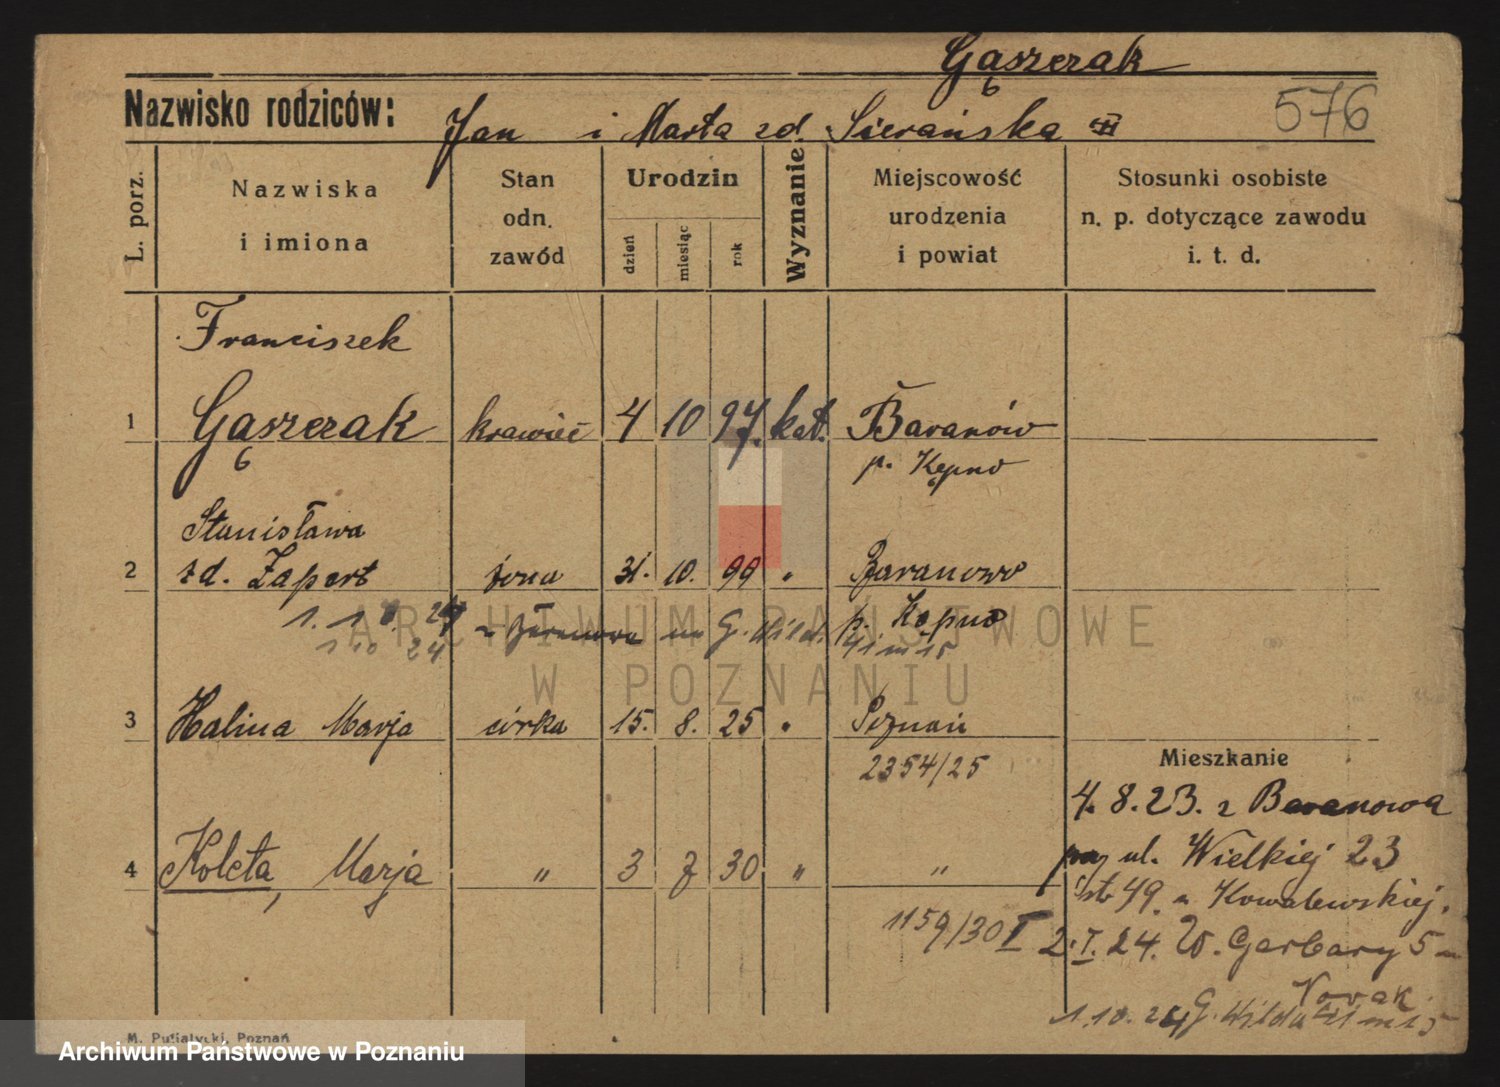 Gąszczak
Nazwisko rodziców: Jan i Marta zd. Sierańska
576
L. porz.
Nazwiska i imiona
Stan odn. zawód
Urodzin
dzień
miesiąc
rok
Wyznanie
Miejscowość urodzenia i powiat
Stosunki osobiste n. p. dotyczące zawodu i. t. d.
Franciszek
1 Gąszczak krawiec 4 10 97. kat. Baranów
p. Kępno
Stanisława
2 zd. Zapart żona 31. 10. 99 " Baranowo
p. Kępno
1. 10 24 G. Wild. 41 m 15
3 Halina Marja córka 15. 8. 25 " Poznań
2354/25
Mieszkanie
4. 8. 23. z Baranowa
ul. Wielkiej 23
4 Koleta, Marja " 3 2 30 " "
49. u Kowalewskiej.
1159/30 I
2. I. 24. W. Garbary 5
Novak.
1. 10. 24 G. Wilda 41 m 15
M. Putiatycki, Poznań
ARCHIWUM PAŃSTWOWE
W POZNANIU
Archiwum Państwowe w Poznaniu